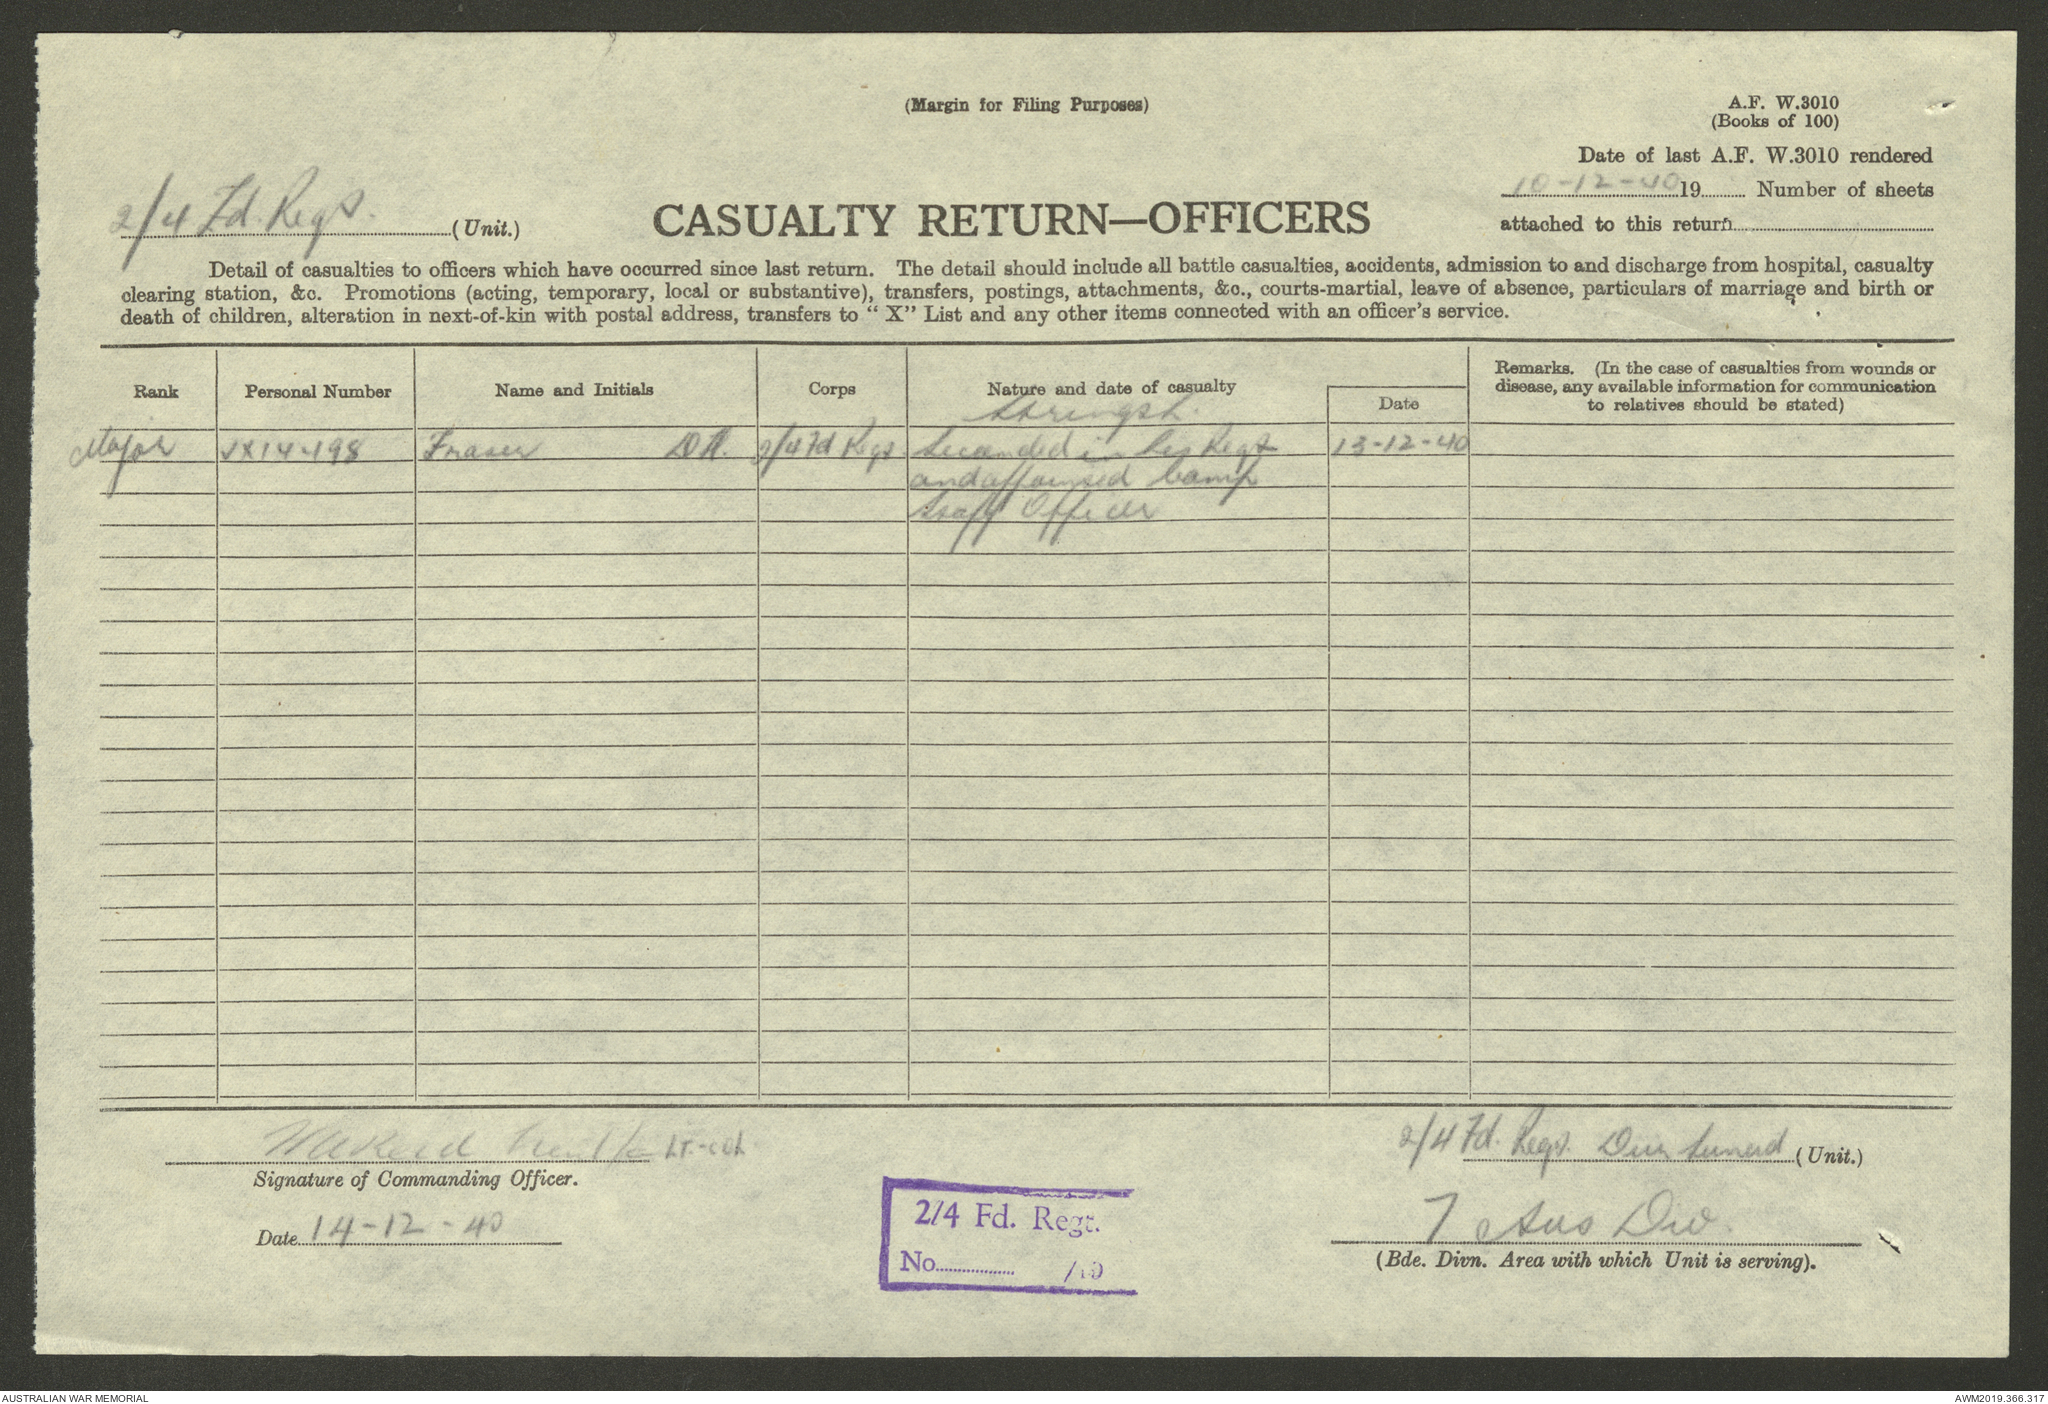 (Margin for Filing Purposes)
A.F. W.3010
(Books of 100)
Date of last A.F. W.3010 rendered
10-12-40 19 Number of sheets
attached to this return
2/4 Fd. Regt. (Unit.)
CASUALTY RETURN—OFFICERS
Detail of casualties to officers which have occurred since last return. The detail should include all battle casualties, accidents, admission to and discharge from hospital, casualty
clearing station, &c. Promotions (acting, temporary, local or substantive), transfers, postings, attachments, &c., courts-martial, leave of absence, particulars of marriage and birth or
death of children, alteration in next-of-kin with postal address, transfers to "X" List and any other items connected with an officer's service.
Rank Personal Number Name and Initials Corps Nature and date of casualty Date Remarks. (In the case of casualties from wounds or
disease, any available information for communication
to relatives should be stated)
Strength.
Major VX14198 Fraser 2/4 Fd Regt Seconded in Regt 13-12-40
and Camp
Staff Officer
Lt-Col
Signature of Commanding Officer.
Date 14-12-40
2/4 Fd. Regt.
No. /19
2/4 Fd. Regt. (Unit.)
7 Aus Div.
(Bde. Divn. Area with which Unit is serving).
AUSTRALIAN WAR MEMORIAL
AWM2019.366.317